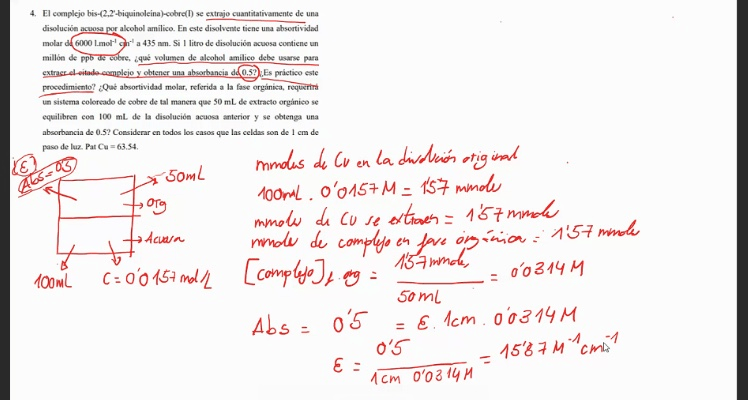 4. El complejo bis-(2,2'-biquinoleina)-cobre(I) se extrajo cuantitativamente de una
disolución acuosa por alcohol amílico. En este disolvente tiene una absortividad
molar de 6000 l.mol⁻¹ cm⁻¹ a 435 nm. Si 1 litro de disolución acuosa contiene un
millón de ppb de cobre, ¿qué volumen de alcohol amílico debe usarse para
extraer el citado complejo y obtener una absorbancia de 0.5? ¿Es práctico este
procedimiento? ¿Qué absortividad molar, referida a la fase orgánica, requerirá
un sistema coloreado de cobre de tal manera que 50 mL de extracto orgánico se
equilibren con 100 mL de la disolución acuosa anterior y se obtenga una
absorbancia de 0.5? Considerar en todos los casos que las celdas son de 1 cm de
paso de luz. Pat Cu = 63.54.
(ε)
Abs = 0'5
50mL
Org
Acuosa
100mL C = 0'0157 mol/L
mmoles de Cu en la disolución original
100mL . 0'0157 M = 1'57 mmole
mmoles de Cu se extraen = 1'57 mmole
mmole de complejo en fase orgánica = 1'57 mmole
[complejo]f. org = 1'57 mmoles / 50 mL = 0'0314 M
Abs = 0'5 = ε. 1cm . 0'0314 M
ε = 0'5 / 1cm 0'0314 M = 15'87 M⁻¹ cm⁻¹